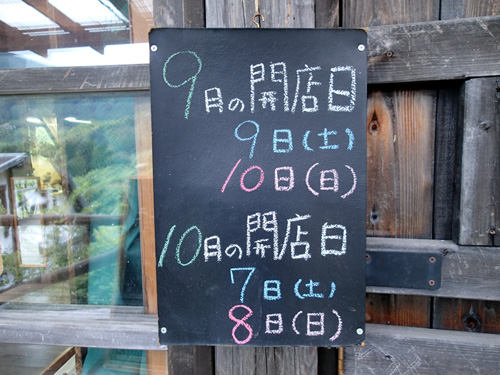 9月の開店日
9日(土)
10日(日)
10月の開店日
7日(土)
8日(日)